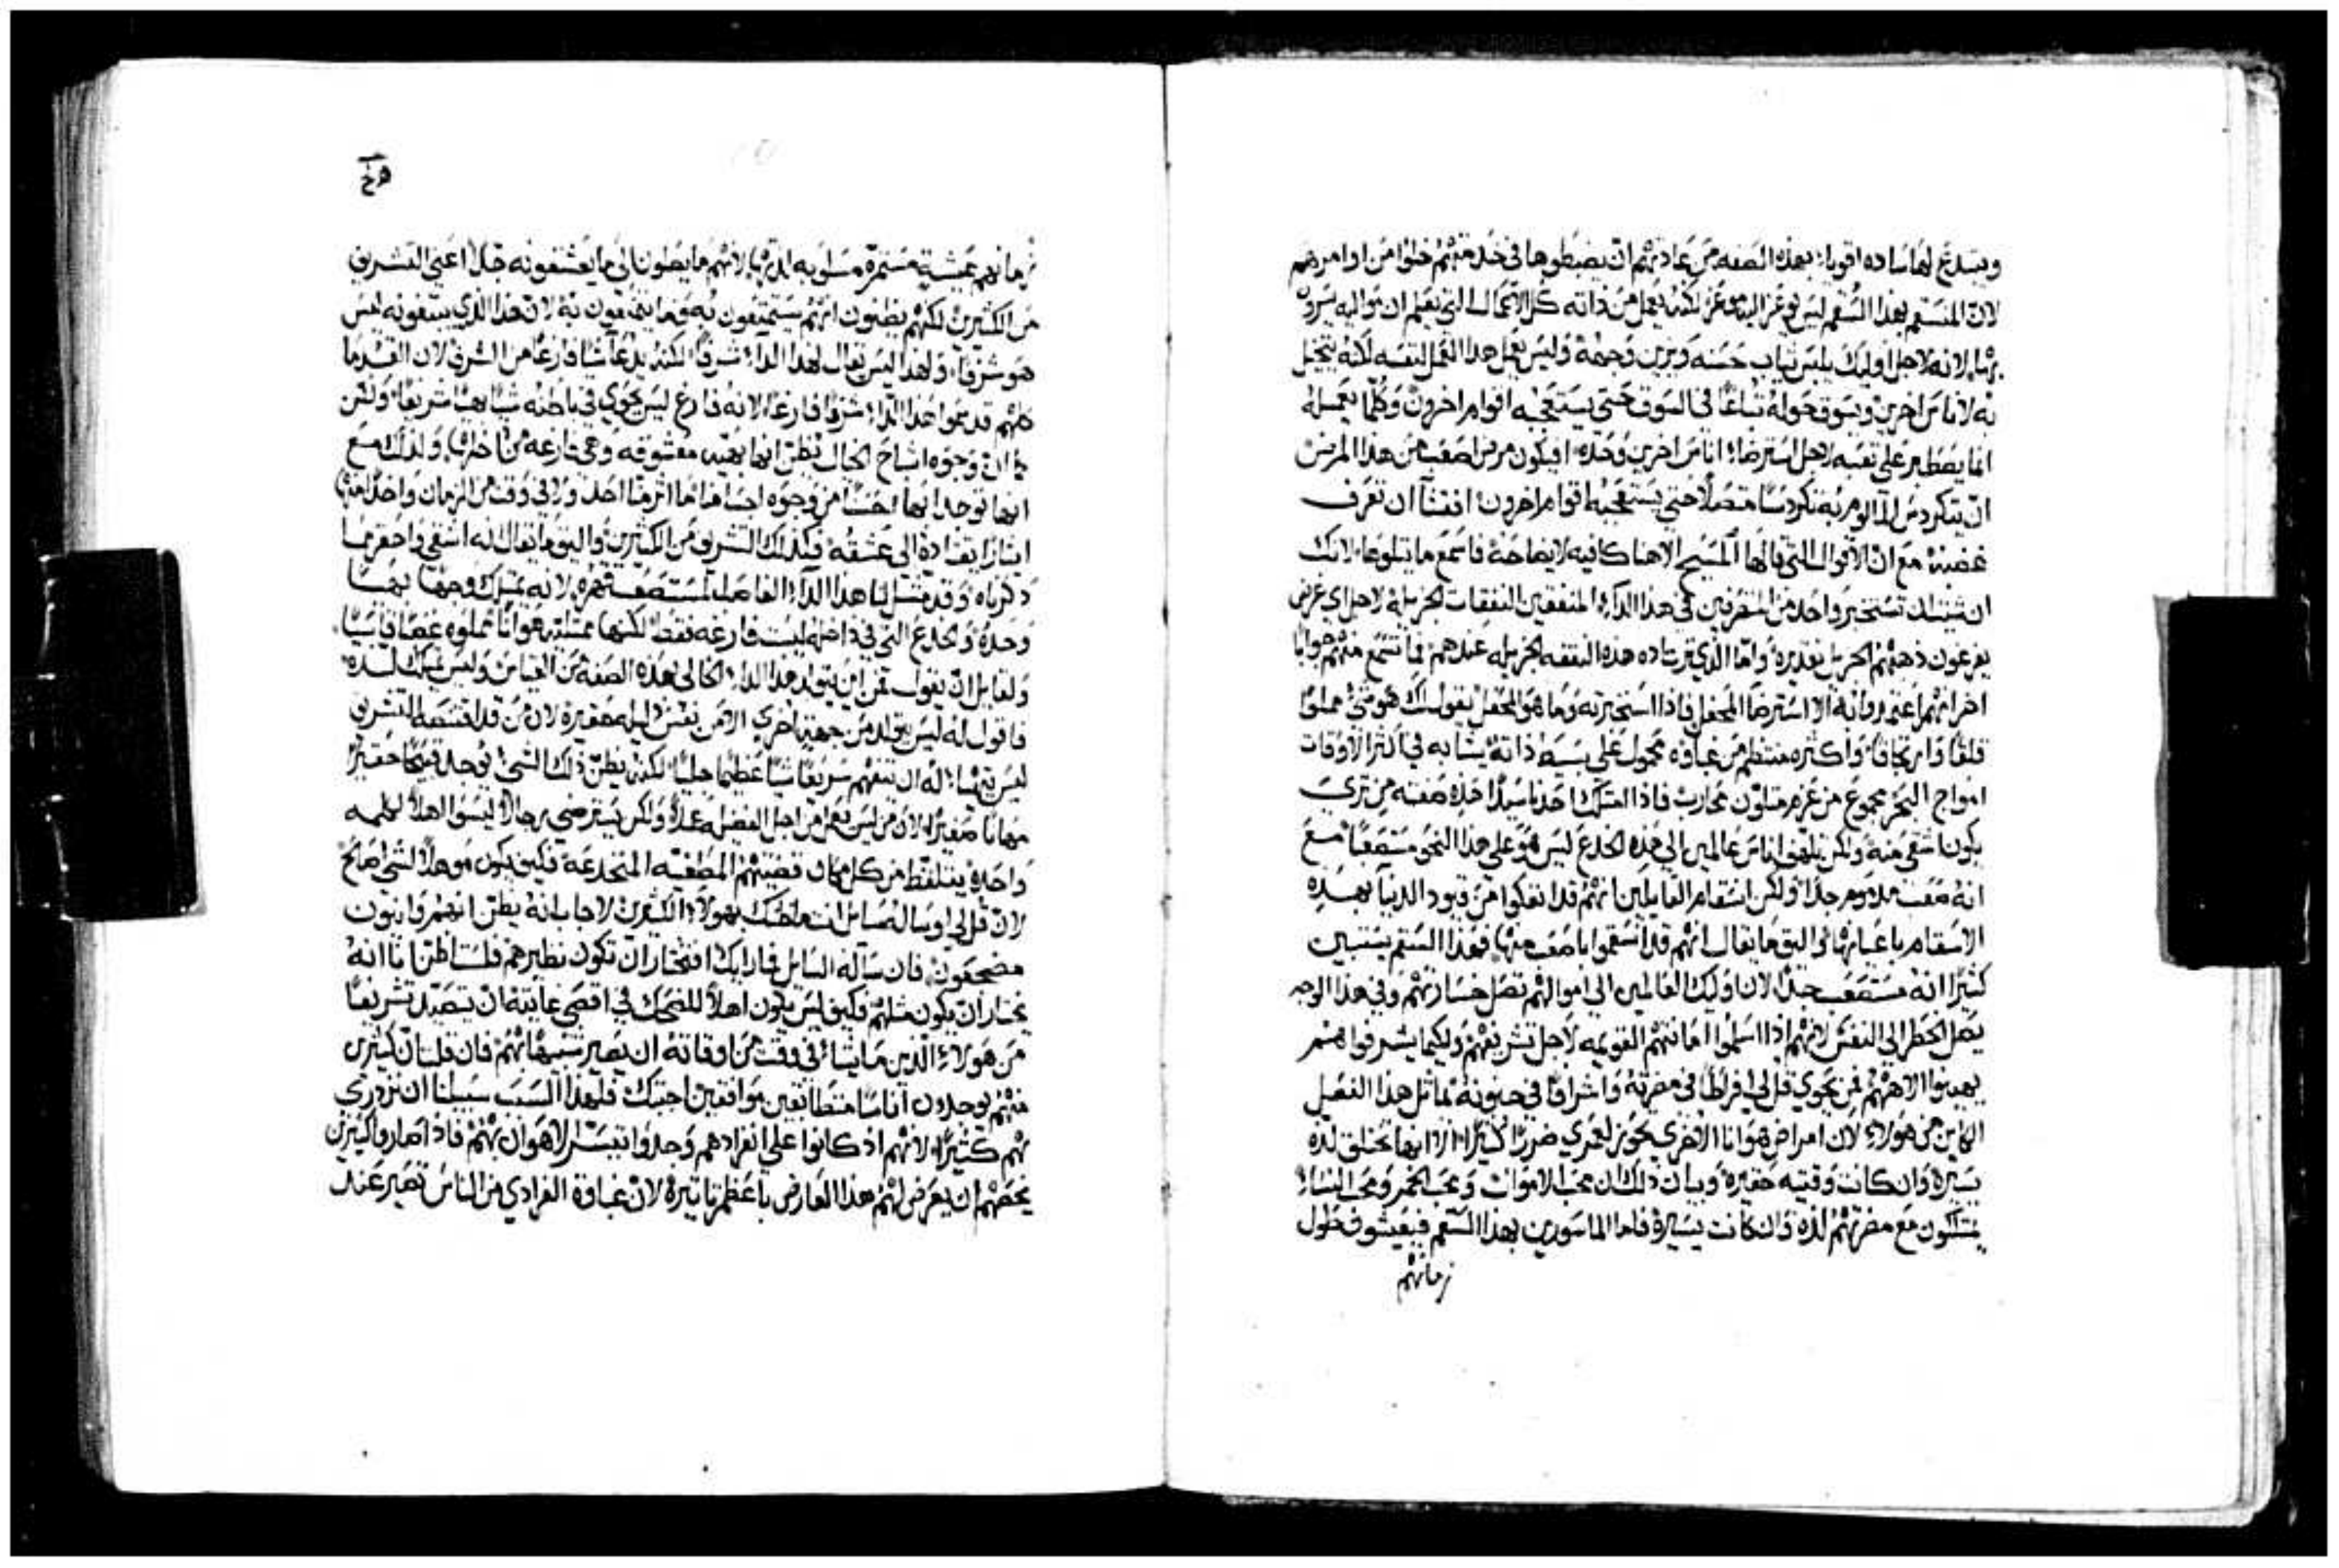 ويبتدع لها ساده اقويا؛ بهذه الصفه من عادتهم ان يضبطوها في خدمتهم خلوا من اوامرهم
لان المنسقم بهذا السقم ليس يوعز اليه موعز لكنه يعمل من ذاته كل الاعمال التي يعلم ان مواليه يسرون
بها، لانه لاجل اوليك يلبس ثياب حسنه ويزين وجهه وليس يعمل هذا العمل لنفسه لكنه يتخيل
به لاناس اخرين ويسوق حوله تباعا في السوق حتى يستعجبه اقوام اخرون وكلما يعمله
انما يضطبر على تعبه لاجل استرضا؛ اناس اخرين وحده افيكون مرض اصعب من هذا المرض
ان يتكردس الالوم به تكردسا متصلا حتى يستعجبه اقوام اخرون افتشا ان تعرف
غصبه مع ان الاقوال التي قالها المسيح الاهنا كافيه لايضاحه فاسمع ما يتلوها لانك
ان شيت ان تستخبر واحد من المشرفين في هذا الذكر المنفقين النفقات الجزيله لاجل اي غرض
يفرغون ذهبهم الجزيل تقديره واما الذي ترتاده هذه النفقه الجزيله عندهم فما تسمع منهم جوابا
اخر انهم اعتمدوا نه الا استرضا المحفل فاذا استخبرته وما هو المحفل يقول لك هو شي مملوا
قلقا وارتجافا واكثره منتظم من غباوه محمول على بسيط ذاته يشابه في اكثر الاوقات
امواج البحر مجموع من عزم متلون محارب فاذا امتلك احدنا سيدا هذه صفته من ترى
يكون اشقى منه ولكن تلهف اناس عالمين الى هذه الخدع ليس هو على هذا النحو مستصعبا مع
انه صعب ملاوم جدا ولكن استقام القايلين انهم قد انفكوا من قيود الدنيا بهذه
الاسقام باعيانها واليق ما يقال انهم قد استقموا باصعب منها فهذا السقم يستبين
كثيرا انه مستصعب جدا لان اوليك العالمين الى اموالهم تصل خسارتهم وفي هذا الوجه
يصل الخطر الى النفس لانهم اذا اسلموا امانتهم القويمه لاجل تشريفهم ولكيما يشرفوا هم
يهينوا الاههم فمن يحوي قل لي افراطا في مضرته واشراقا في جنونه يماثل هذا الفعل
الكاين من هولاء لان امراض هوانا الاخرى يحوز لعمري ضررا كثيرا الا انها تختلق لذه
يسيره وان كانت وقتيه حقيره وبيان ذلك ان محب الاموات ومحب الخمر ومحب النساء
يمتلكون مع مضرتهم لذه وان كانت يسيره فاما الماسورين بهذا السقم فيعيشون طول
زمانهم
زمانهم عيشية مستمرة مسلوبه الذة، لانهم ما يصلون الى ما يعشقونه جدا اعني التشريف
من الكثيرين لكنهم يظنون انهم يستمتعون به وما يتمتعون به لان هذا الذي يبتغونه ليس
هو شرفا، ولهذا ليس يقال لهذا الدآ؛ شرفا لكنه يدعا شيا فارغا من الشرف لان القدما
كلهم قد سموا هذا الدآ؛ شرفا فارغا لانه فارغ ليس يحوي في باطنه شيا بهيا شريفا ولكن
كما ان وجوه اشباح الخيال تظن انها بهيه معشوقه وهي فارغه من داخلها، ولذلك مع
انها توجد ابها حسنا من وجوه اجسامنا ما اثرت احد ولا في وقت من الزمان واحدا منها
ايثارا يقتاده الى عشقه فكذلك التشريف من الكثيرين واليق ما يقال انه اشقى واحقر مما
ذكرناه وقد مثل لنا هذا الدآ؛ الفاحط المستصعب قهره لانه يمتلك وجها بهيا
وحده والخدع التي في داخله ليست فارغه فقط لكنها ممتليه هوانا مملوه غصبا قاسيا
ولقايل ان يقول من اين يتولد هذا الدآ؛ الخالي بهذه الصفة من القياس وليس يملك لذه
فاقول له ليس يتولد من جهة اخرى الا من نفس ذليله حقيره لان من قد اقتنصه التشريف
ليس يتهيا؛ له ان يتفهم سريعا شيا عظيما جليلا لكنه يظن ذلك الشي؛ يوجد قبيحا حقيرا
مهانا صغيرا، لان من ليس يعمل من اجل الفضيله عملا ولكن يسترضي رجالا ليسوا اهلا لكلمه
واحده يتلقط من كل مكان قضيتهم المطغيه المنخدعه فكيف يكون موهلا لشي صالح
لان قل لي لو ساله سايل انت ما ظنك بهولاء الكثيرين لاجاب انه يظن انهم وانيون
مضجعون، فان سآله السايل فما رايك افتختار ان تكون نظيرهم فلست اظن انا انه
يختار ان يكون مثلهم فكيف ليس يكون اهلا للضحك في اقصى غايته ان يتصيد تشريفا
من هولاء الذين ما يشاء في وقت من اوقاته ان يصير شبيها بهم فان قلت ان كثيرين
منهم يوجدون اناسا متطابقين موافقين اجبتك فلهذا السبب سبيلنا ان نزدري
بهم كثيرا لانهم اذ كانوا على انفرادهم وجدوا متيسرا الاهوان بهم فاذا صاروا كثيرين
يخصهم ان يعرض لهم هذا العارض باعظم تاثيره لان غباوة الفرادي من الناس تصير عند